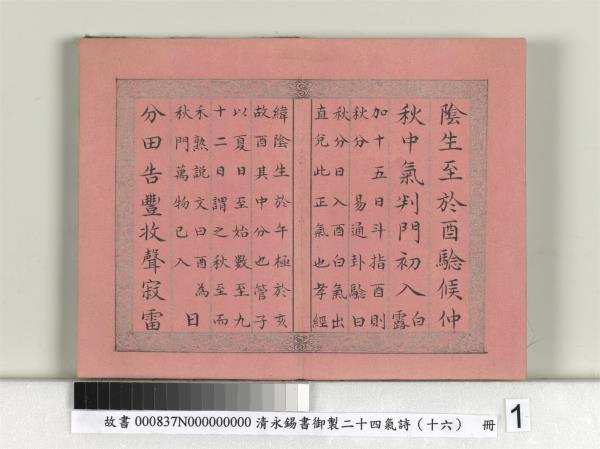 陰生至於酉驗候仲
秋中氣判門初入白露
加十五日斗指酉則
秋分　易通卦驗曰
秋分日入酉白氣出
直兌此正氣也孝經
緯陰生於午極於亥
故酉其中分也管子
以夏日至始數至九
十二日謂之秋至而
禾熟說文曰酉為
秋門萬物已入　日
分田告豐收聲寂雷
故書 000837N000000000 清永錫書御製二十四氣詩（十六）　冊
1